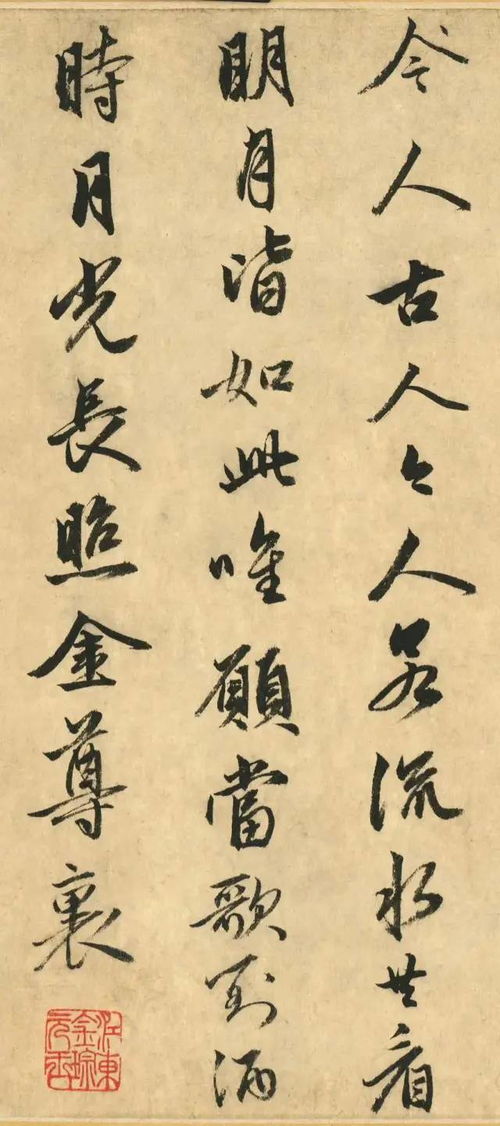 今人古人今人若流水共看
明月皆如此唯願當歌對酒
時月光長照金尊裏
江東
金琮
元玉